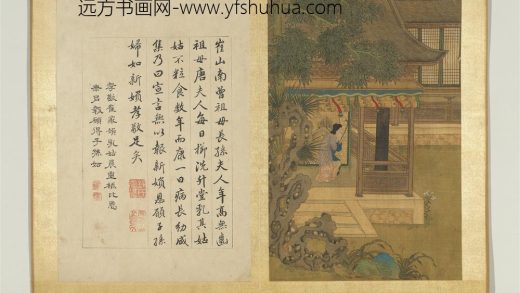 远方书画网-www.yfshuhua.com
崔山南曾祖母長孫夫人年高無齒
祖母唐夫人每日櫛洗升堂乳其姑
姑不粒食數年而康一日病長幼咸
集乃曰宣言無以報新婦恩願子孫
婦如新婦孝敬足矣
孝敬崔家婦乳姑晨盥梳此恩
無以報願得子孫如